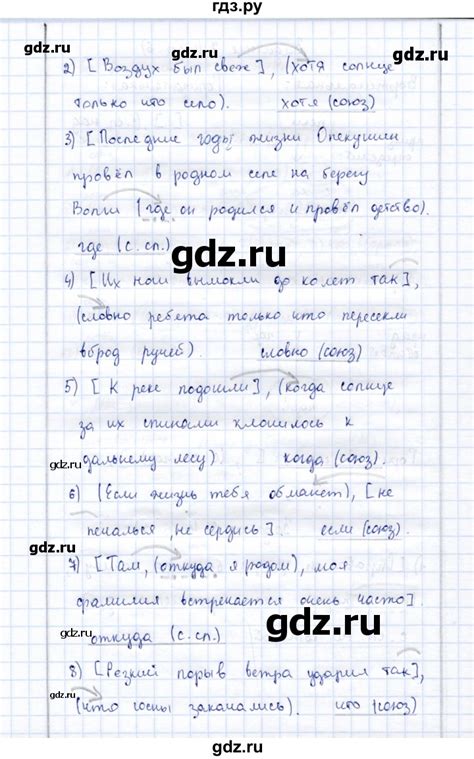 гдз.ру
gdz.ru
gdz.ru
2) [Воздух был свеж], (хотя солнце
только что село). хотя (союз)
3) [Последние годы жизни Опекушин
провёл в родном селе на берегу
Волги (где он родился и провёл детство).
где (с. сл.)
gdz.ru
gdz.ru
4) [Их ноги вымокли до колет так],
(словно ребята только что пересекли
вброд ручей). словно (союз)
gdz.ru
5) [К реке подошли], (когда солнце
за их спинами клонилось к
дальнему лесу). когда (союз)
gdz.ru
gdz.ru
6) (Если жизнь тебя обманет), [не
печалься, не сердись]. если (союз).
gdz.ru
7) [Там, (откуда я родом), моя
фамилия встречается очень часто].
откуда (с. сл.)
gdz.ru
gdz.ru
8) [Резкий порыв ветра ударил так],
(что сосны закачались). что (союз)
gdz.ru
gdz.ru